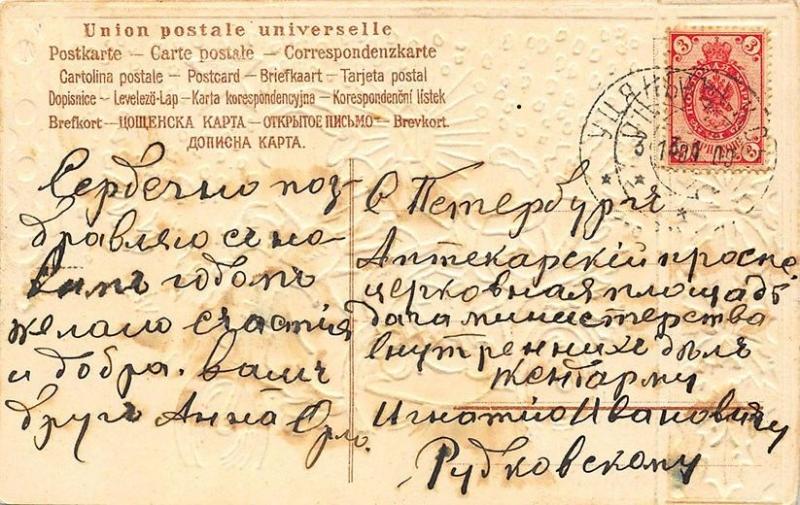 Union postale universelle
Postkarte — Carte postale — Correspondenzkarte
Cartolina postale — Postcard — Briefkaart — Tarjeta postal
Dopisnice — Levelező-Lap — Karta korespondencyjna — Korespondenční lístek
Brefkort — ЦОЩЕНСКА КАРТА — ОТКРЫТОЕ ПИСЬМО — Brevkort.
ДОПИСНА КАРТА.
3 3
Сердечно поз-
дравляю с но-
вымъ годомъ
желаю счастія
и добра. вашъ
другъ Анна Орло.
в Петербургя
Аптекарскій проспе.
церковная площадь
дача министерства
внутреннихъ дѣлъ
жендарму
Игнатію Ивановичу
Рудковскому